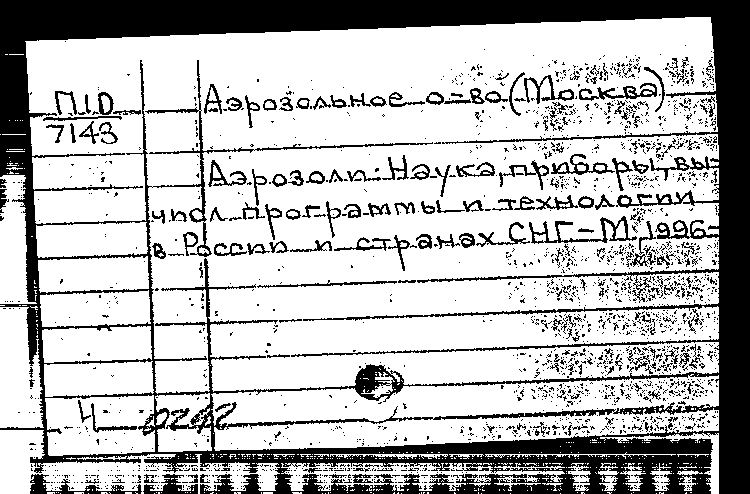 П1D
7143
Аэрозольное о-во (Москва)
Аэрозоли: Наука, приборы, вы-
числ. программы и технологии
в России и странах СНГ.-М., 1996-
Ч 0242